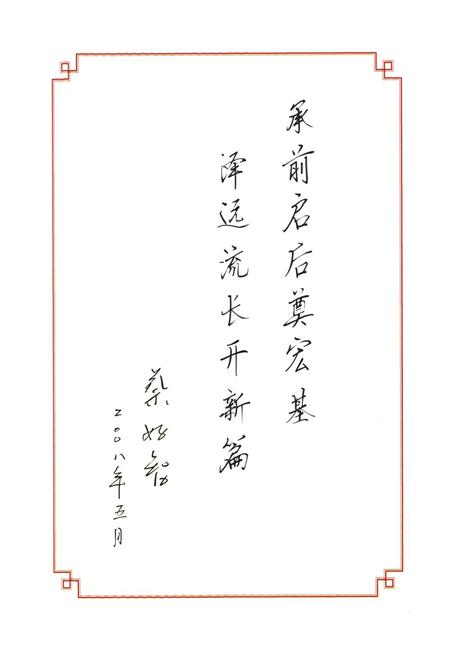 承前启后奠宏基
泽远流长开新篇
蔡好智
二〇〇八年五月